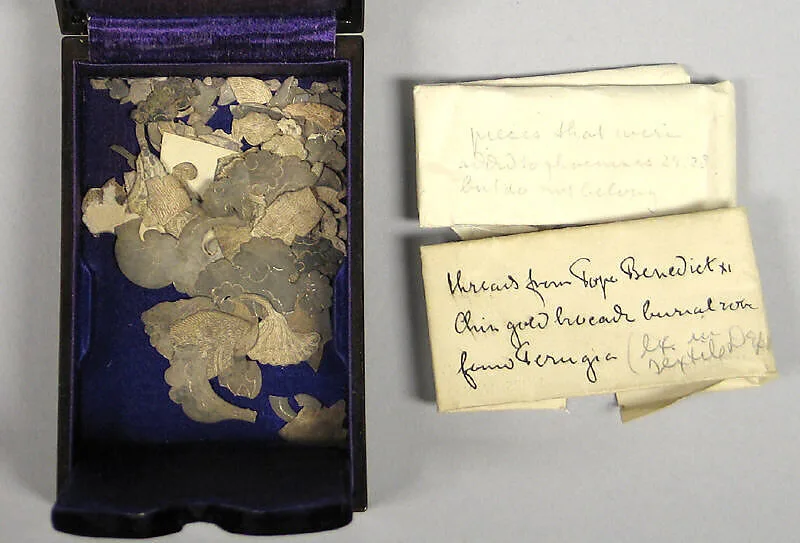 pieces that were
added to phoenixes 29.23
but do not belong
threads from Pope Benedict XI
Chin gold brocade burial robe
found Perugia (ex. in
Textile Dep